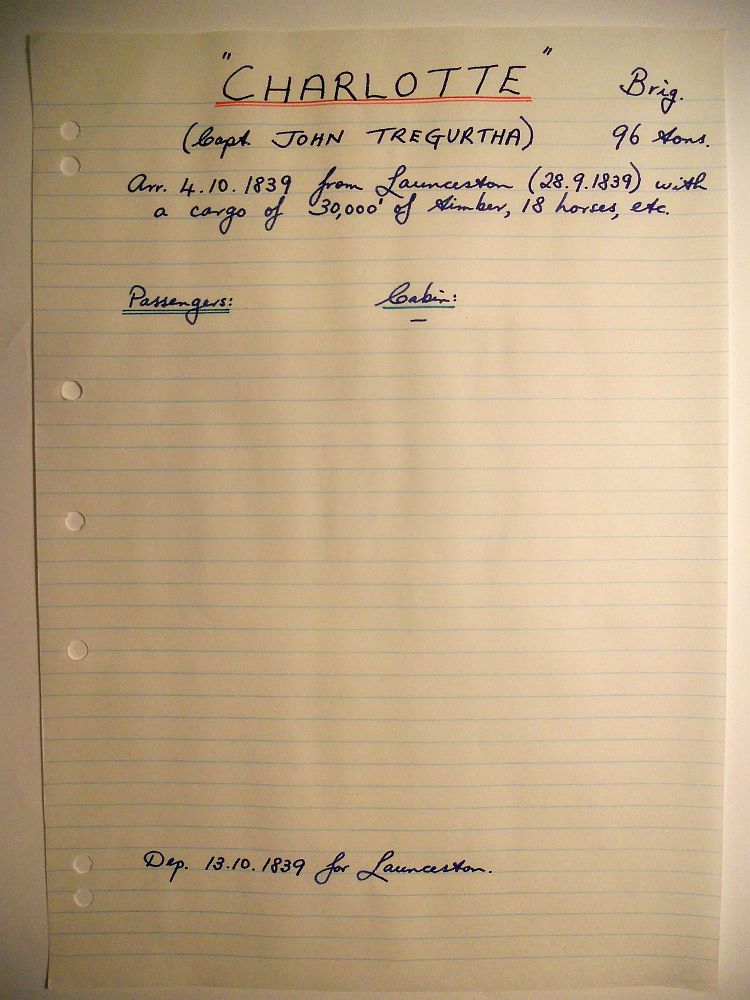 "CHARLOTTE" Brig.
(Capt. JOHN TREGURTHA) 96 tons.
Arr. 4.10.1839 from Launceston (28.9.1839) with
a cargo of 30,000' of timber, 18 horses, etc.
Passengers: Cabin:
—
Dep. 13.10.1839 for Launceston.